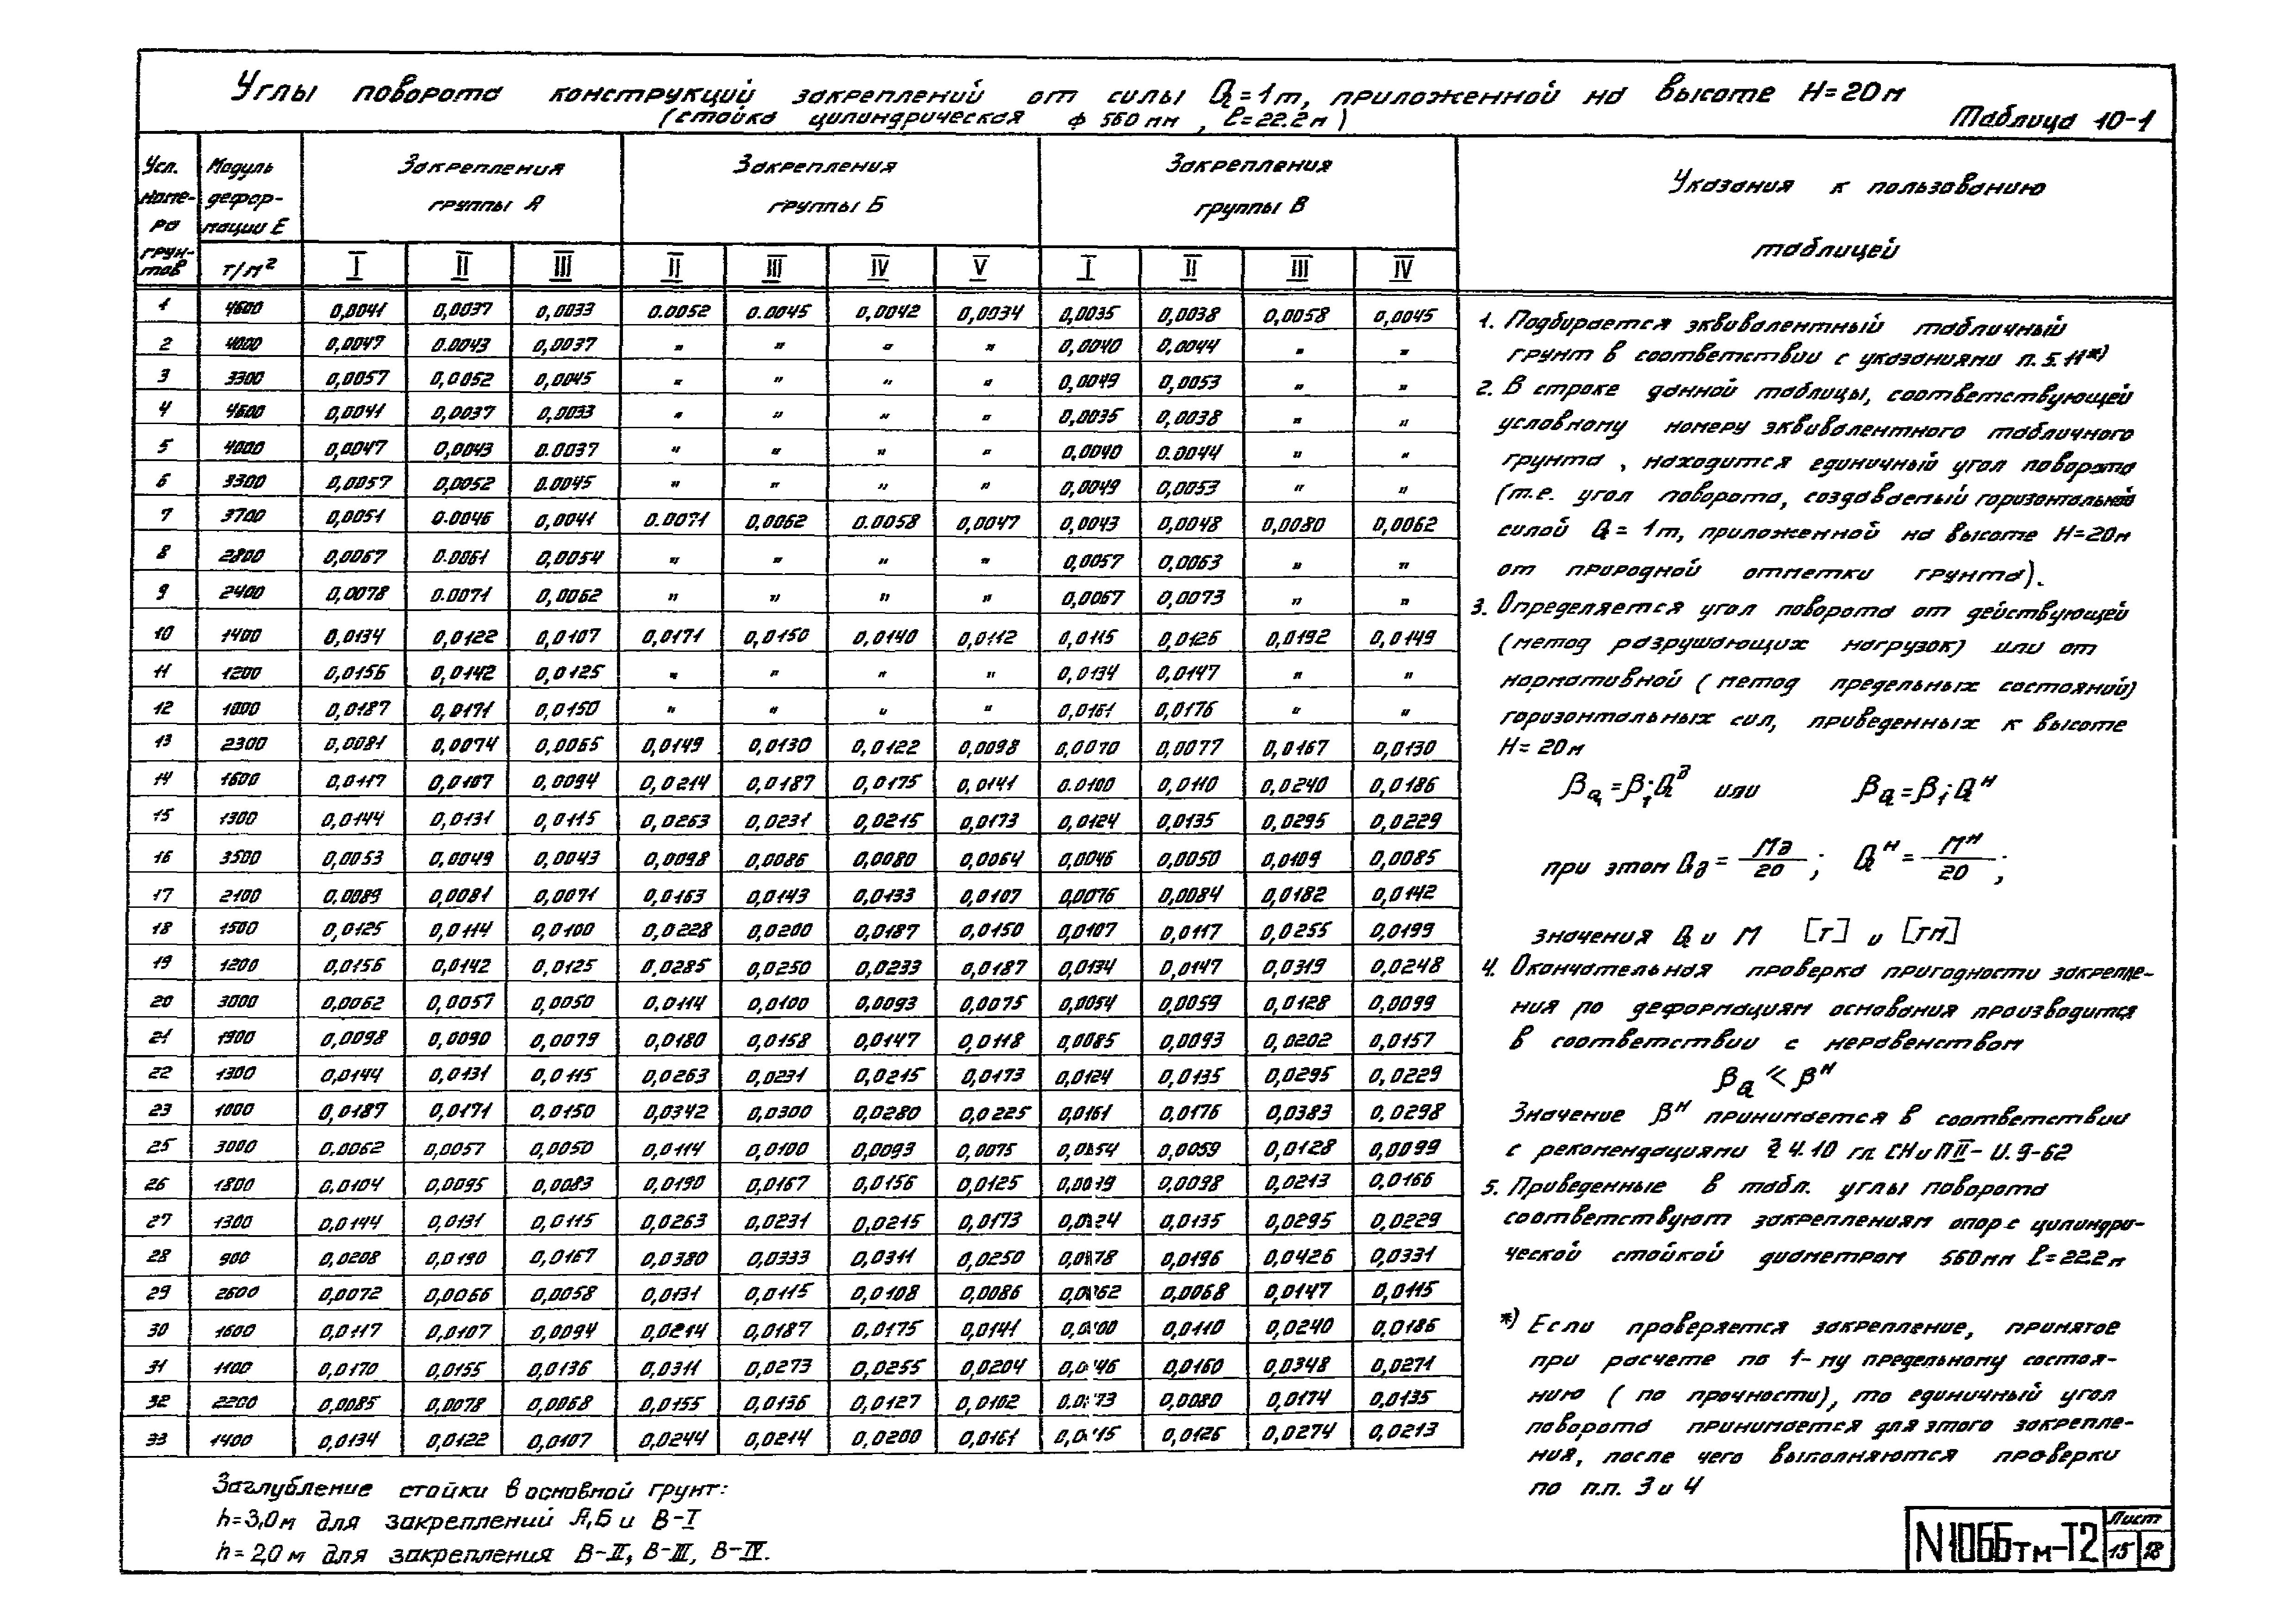 Углы поворота конструкций закреплений от силы Q=1т, приложенной на высоте H=20м
(стойка цилиндрическая ф 560 мм, ℓ=22.2м)
Таблица 10-1
Усл. номера грунтов | Модуль деформации Е т/м² | Закрепления группы А | Закрепления группы Б | Закрепления группы В
I II III | II III IV V | I II III IV
1 4600 0,0041 0,0037 0,0033 0.0052 0.0045 0,0042 0,0034 0,0035 0,0038 0,0058 0,0045
2 4000 0,0047 0.0043 0,0037 " " " " 0,0040 0,0044 " "
3 3300 0,0057 0,0052 0,0045 " " " " 0,0049 0,0053 " "
4 4600 0,0041 0,0037 0,0033 " " " " 0,0035 0,0038 " "
5 4000 0,0047 0,0043 0.0037 " " " " 0,0040 0.0044 " "
6 3300 0,0057 0,0052 0.0045 " " " " 0,0049 0,0053 " "
7 3700 0,0051 0.0046 0,0041 0.0071 0,0062 0.0058 0,0047 0,0043 0,0048 0,0080 0,0062
8 2800 0,0067 0.0061 0,0054 " " " " 0,0057 0,0063 " "
9 2400 0,0078 0.0071 0,0062 " " " " 0,0067 0,0073 " "
10 1400 0,0134 0,0122 0,0107 0,0171 0,0150 0,0140 0,0112 0,0115 0,0126 0,0192 0,0149
11 1200 0,0156 0,0142 0,0125 " " " " 0,0134 0,0147 " "
12 1000 0,0187 0,0171 0,0150 " " " " 0,0161 0,0176 " "
13 2300 0,0081 0,0074 0,0065 0,0149 0,0130 0,0122 0,0098 0,0070 0,0077 0,0167 0,0130
14 1600 0,0117 0,0107 0,0094 0,0214 0,0187 0,0175 0,0141 0.0100 0,0110 0,0240 0,0186
15 1300 0,0144 0,0131 0,0115 0,0263 0,0231 0,0215 0,0173 0,0124 0,0135 0,0295 0,0229
16 3500 0,0053 0,0049 0,0043 0,0098 0,0086 0,0080 0,0064 0,0046 0,0050 0,0109 0,0085
17 2100 0,0089 0,0081 0,0071 0,0163 0,0143 0,0133 0,0107 0,0076 0,0084 0,0182 0,0142
18 1500 0,0125 0,0114 0,0100 0,0228 0,0200 0,0187 0,0150 0,0107 0,0117 0,0255 0,0199
19 1200 0,0156 0,0142 0,0125 0,0285 0,0250 0,0233 0,0187 0,0134 0,0147 0,0319 0,0248
20 3000 0,0062 0,0057 0,0050 0,0114 0,0100 0,0093 0,0075 0,0054 0,0059 0,0128 0,0099
21 1900 0,0098 0,0090 0,0079 0,0180 0,0158 0,0147 0,0118 0,0085 0,0093 0,0202 0,0157
22 1300 0,0144 0,0131 0,0115 0,0263 0,0231 0,0215 0,0173 0,0124 0,0135 0,0295 0,0229
23 1000 0,0187 0,0171 0,0150 0,0342 0,0300 0,0280 0,0225 0,0161 0,0176 0,0383 0,0298
25 3000 0.0062 0,0057 0,0050 0,0114 0,0100 0,0093 0,0075 0,0054 0,0059 0,0128 0,0099
26 1800 0,0104 0,0095 0,0083 0,0190 0,0167 0,0156 0,0125 0,0098 0,0213 0,0166
27 1300 0,0144 0,0131 0,0115 0,0263 0,0231 0,0215 0,0173 0,0135 0,0295 0,0229
28 900 0,0208 0,0190 0,0167 0,0380 0,0333 0,0311 0,0250 0,0196 0,0426 0,0331
29 2600 0,0072 0,0066 0,0058 0,0131 0,0115 0,0108 0,0086 0,0068 0,0147 0,0115
30 1600 0,0117 0,0107 0,0094 0,0214 0,0187 0,0175 0,0141 0,0110 0,0240 0,0186
31 1100 0,0170 0,0155 0,0136 0,0311 0,0273 0,0255 0,0204 0,0160 0,0348 0,0271
32 2200 0,0085 0,0078 0,0068 0,0155 0,0136 0,0127 0,0102 0,0080 0,0174 0,0135
33 1400 0,0134 0,0122 0,0107 0,0244 0,0214 0,0200 0,0161 0,0126 0,0274 0,0213
Заглубление стойки в основной грунт:
h=3,0м для закреплений А,Б и В-I
h=2,0м для закрепления В-II, В-III, В-IV.
Указания к пользованию
таблицей
1. Подбирается эквивалентный табличный
грунт в соответствии с указаниями п.5.11*)
2. В строке данной таблицы, соответствующей
условному номеру эквивалентного табличного
грунта, находится единичный угол поворота
(т.е. угол поворота, создаваемый горизонтальной
силой Q = 1т, приложенной на высоте H=20м
от природной отметки грунта).
3. Определяется угол поворота от действующей
(метод разрушающих нагрузок) или от
нормативной (метод предельных состояний)
горизонтальных сил, приведенных к высоте
H=20м
βQ=β1·Qд или βQ=β1·Qн
при этом Qд = Mд/20; Qн = Mн/20;
значения Q и M [т] и [тм]
4. Окончательная проверка пригодности закрепле-
ния по деформациям основания производится
в соответствии с неравенством
βQ ≤ βн
Значение βн принимается в соответствии
с рекомендациями § 4.10 гл. СНиП II-И.9-62
5. Приведенные в табл. углы поворота
соответствуют закреплениям опор с цилиндри-
ческой стойкой диаметром 560мм ℓ=22.2м
*) Если проверяется закрепление, принятое
при расчете по 1-му предельному состоя-
нию (по прочности), то единичный угол
поворота принимается для этого закрепле-
ния, после чего выполняются проверки
по п.п. 3 и 4
N1066тм-Т2
Лист
15